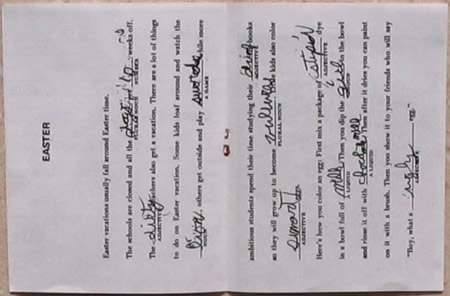 EASTER
Easter vacations usually fall around Easter time.
The schools are closed and all the get weeks off.
PLURAL NOUN NUMBER
The dirty teachers also get a vacation. There are a lot of things
ADJECTIVE
to do on Easter vacation. Some kids loaf around and watch the
others get outside and play swords while more
NOUN A GAME
ambitious students spend their time studying their books
ADJECTIVE
so they will grow up to become Little kids also color
PLURAL NOUN
smart
ADJECTIVE
Here's how you color an egg: First mix a package of dye
ADJECTIVE
in a bowl full of milk Then you dip the in the bowl
A LIQUID NOUN
and rinse it off with chocolate milk Then after it dries you can paint
A LIQUID
on it with a brush. Then you show it to your friends who will say
"Boy, what a ugly egg."
ADJECTIVE